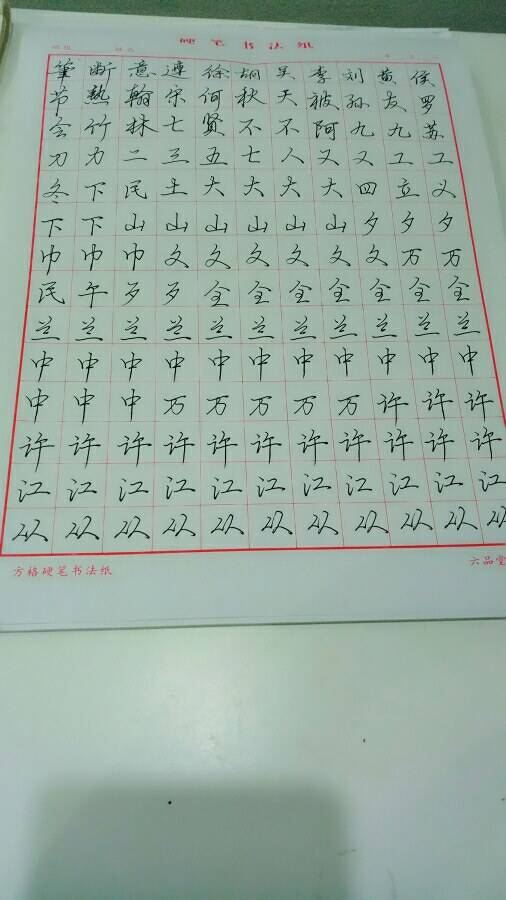 硬笔书法纸
筆断意連徐胡吴李刘黄侯
节熱翰宋何秋天被孙友罗
会竹林七贤不不阿九九苏
刀力二三五七人又又工工
冬下民土大大大大四立义
下下山山山山山山夕夕夕
巾巾巾文文文文文文万万
民午歹歹全全全全全全全
兰兰兰兰兰兰兰兰兰兰兰
中中中中中中中中中中中
中中中万万万万万许许许
许许许许许许许许许许许
江江江江江江江江江江江
从从从从从从从从从从从
方格硬笔书法纸
六品堂